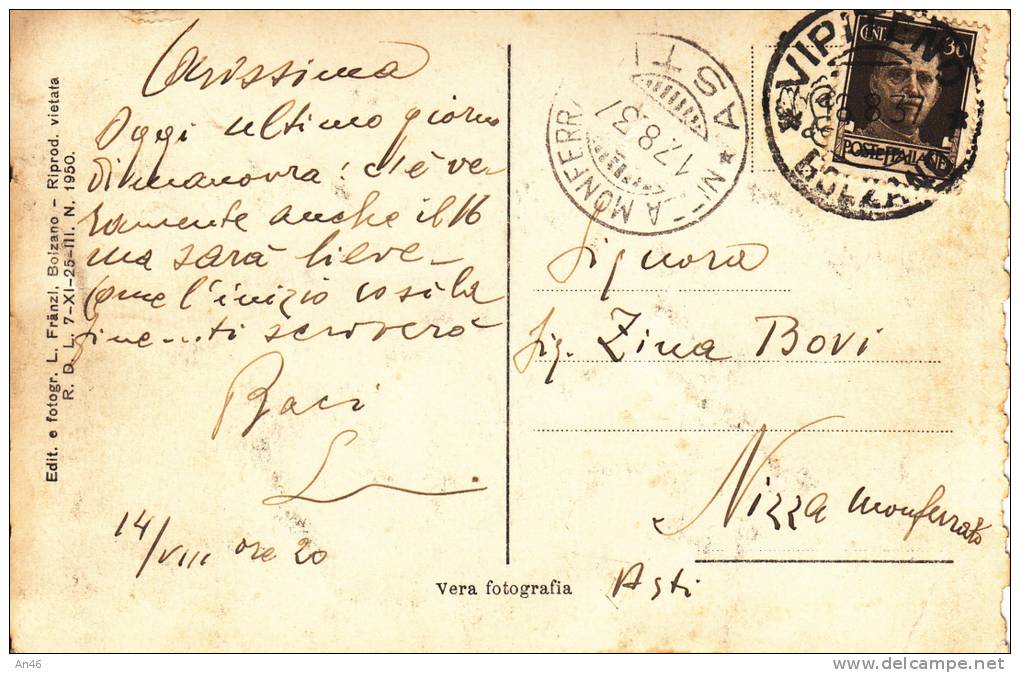 Carissima
Oggi ultimo giorno
di manovra: c'è ve-
ramente anche il 16
ma sarà lieve -
Come l'inizio così la
fine ti scriverò
Baci
L
14/VIII ore 20
Edit. e fotogr. L. Fränzl, Bolzano – Riprod. vietata
R. D. L. 7-XI-25-III. N. 1950.
Vera fotografia
NIZZA MONFERR
ASTI
17.8.37
VIPITENO
18.8.37
BOLZANO
CENT. 30
POSTE ITALIANE
Signora
Sig. Zina Bovi
Nizza Monferrato
Asti
An46
http://www.delcampe.net